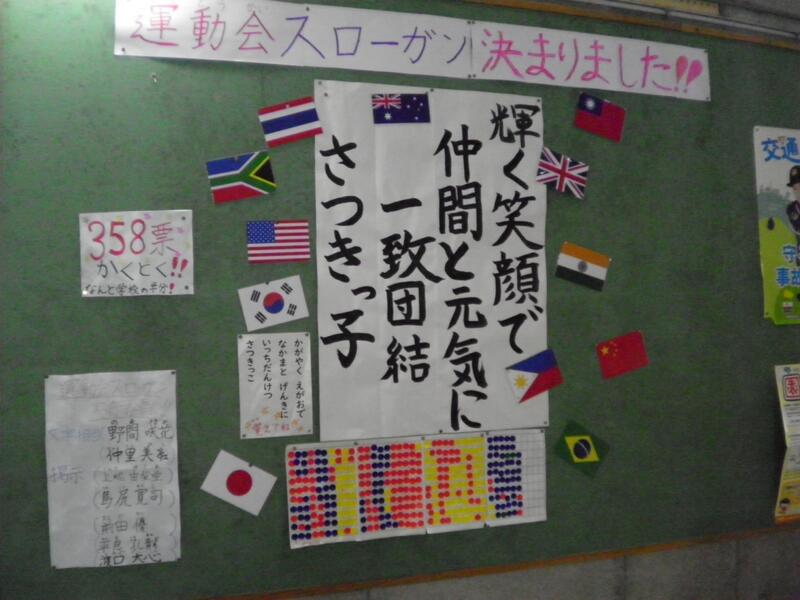 運動会スローガン決まりました!!
輝く笑顔で
仲間と元気に
一致団結
さつきっ子
358票
かくとく!!
なんと学校の半分!
かがやく えがおで
なかまと げんきに
いっちだんけつ
さつきっこ
野間 咲花
仲里 美
掲示
馬尻 寛司
前田 優
濱口 大心
交通
守
事故